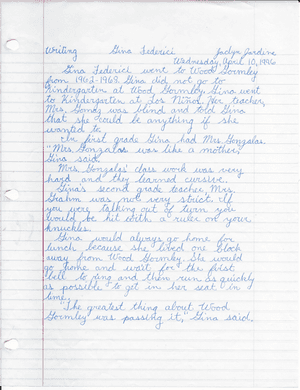 Writing Gina Federici Jaclyn Jardine
Wednesday, April 10, 1996
Gina Federici went to Wood Gormley
from 1962-1968. Gina did not go to
Kindergarten at Wood Gormley. Gina went
to Kindergarten at Los Niños. Her teacher,
Mrs. was blind and told Gina
that she could be anything if she
wanted to.
In first grade Gina had Mrs. Gonzalas.
"Mrs. Gonzalas was like a mother,"
Gina said.
Mrs. Gonzalas' class work was very
hard and they learned cursive.
Gina's second grade teacher, Mrs.
Grahm was not very strict. If
you were talking out of turn you
would be hit with a ruler on your
knuckles.
Gina would always go home for
lunch because she lived one block
away from Wood Gormley. She would
go home and wait for the first
bell to ring and then run as quickly
as possible to get in her seat in
time.
"The greatest thing about Wood
Gormley was passing it," Gina said.